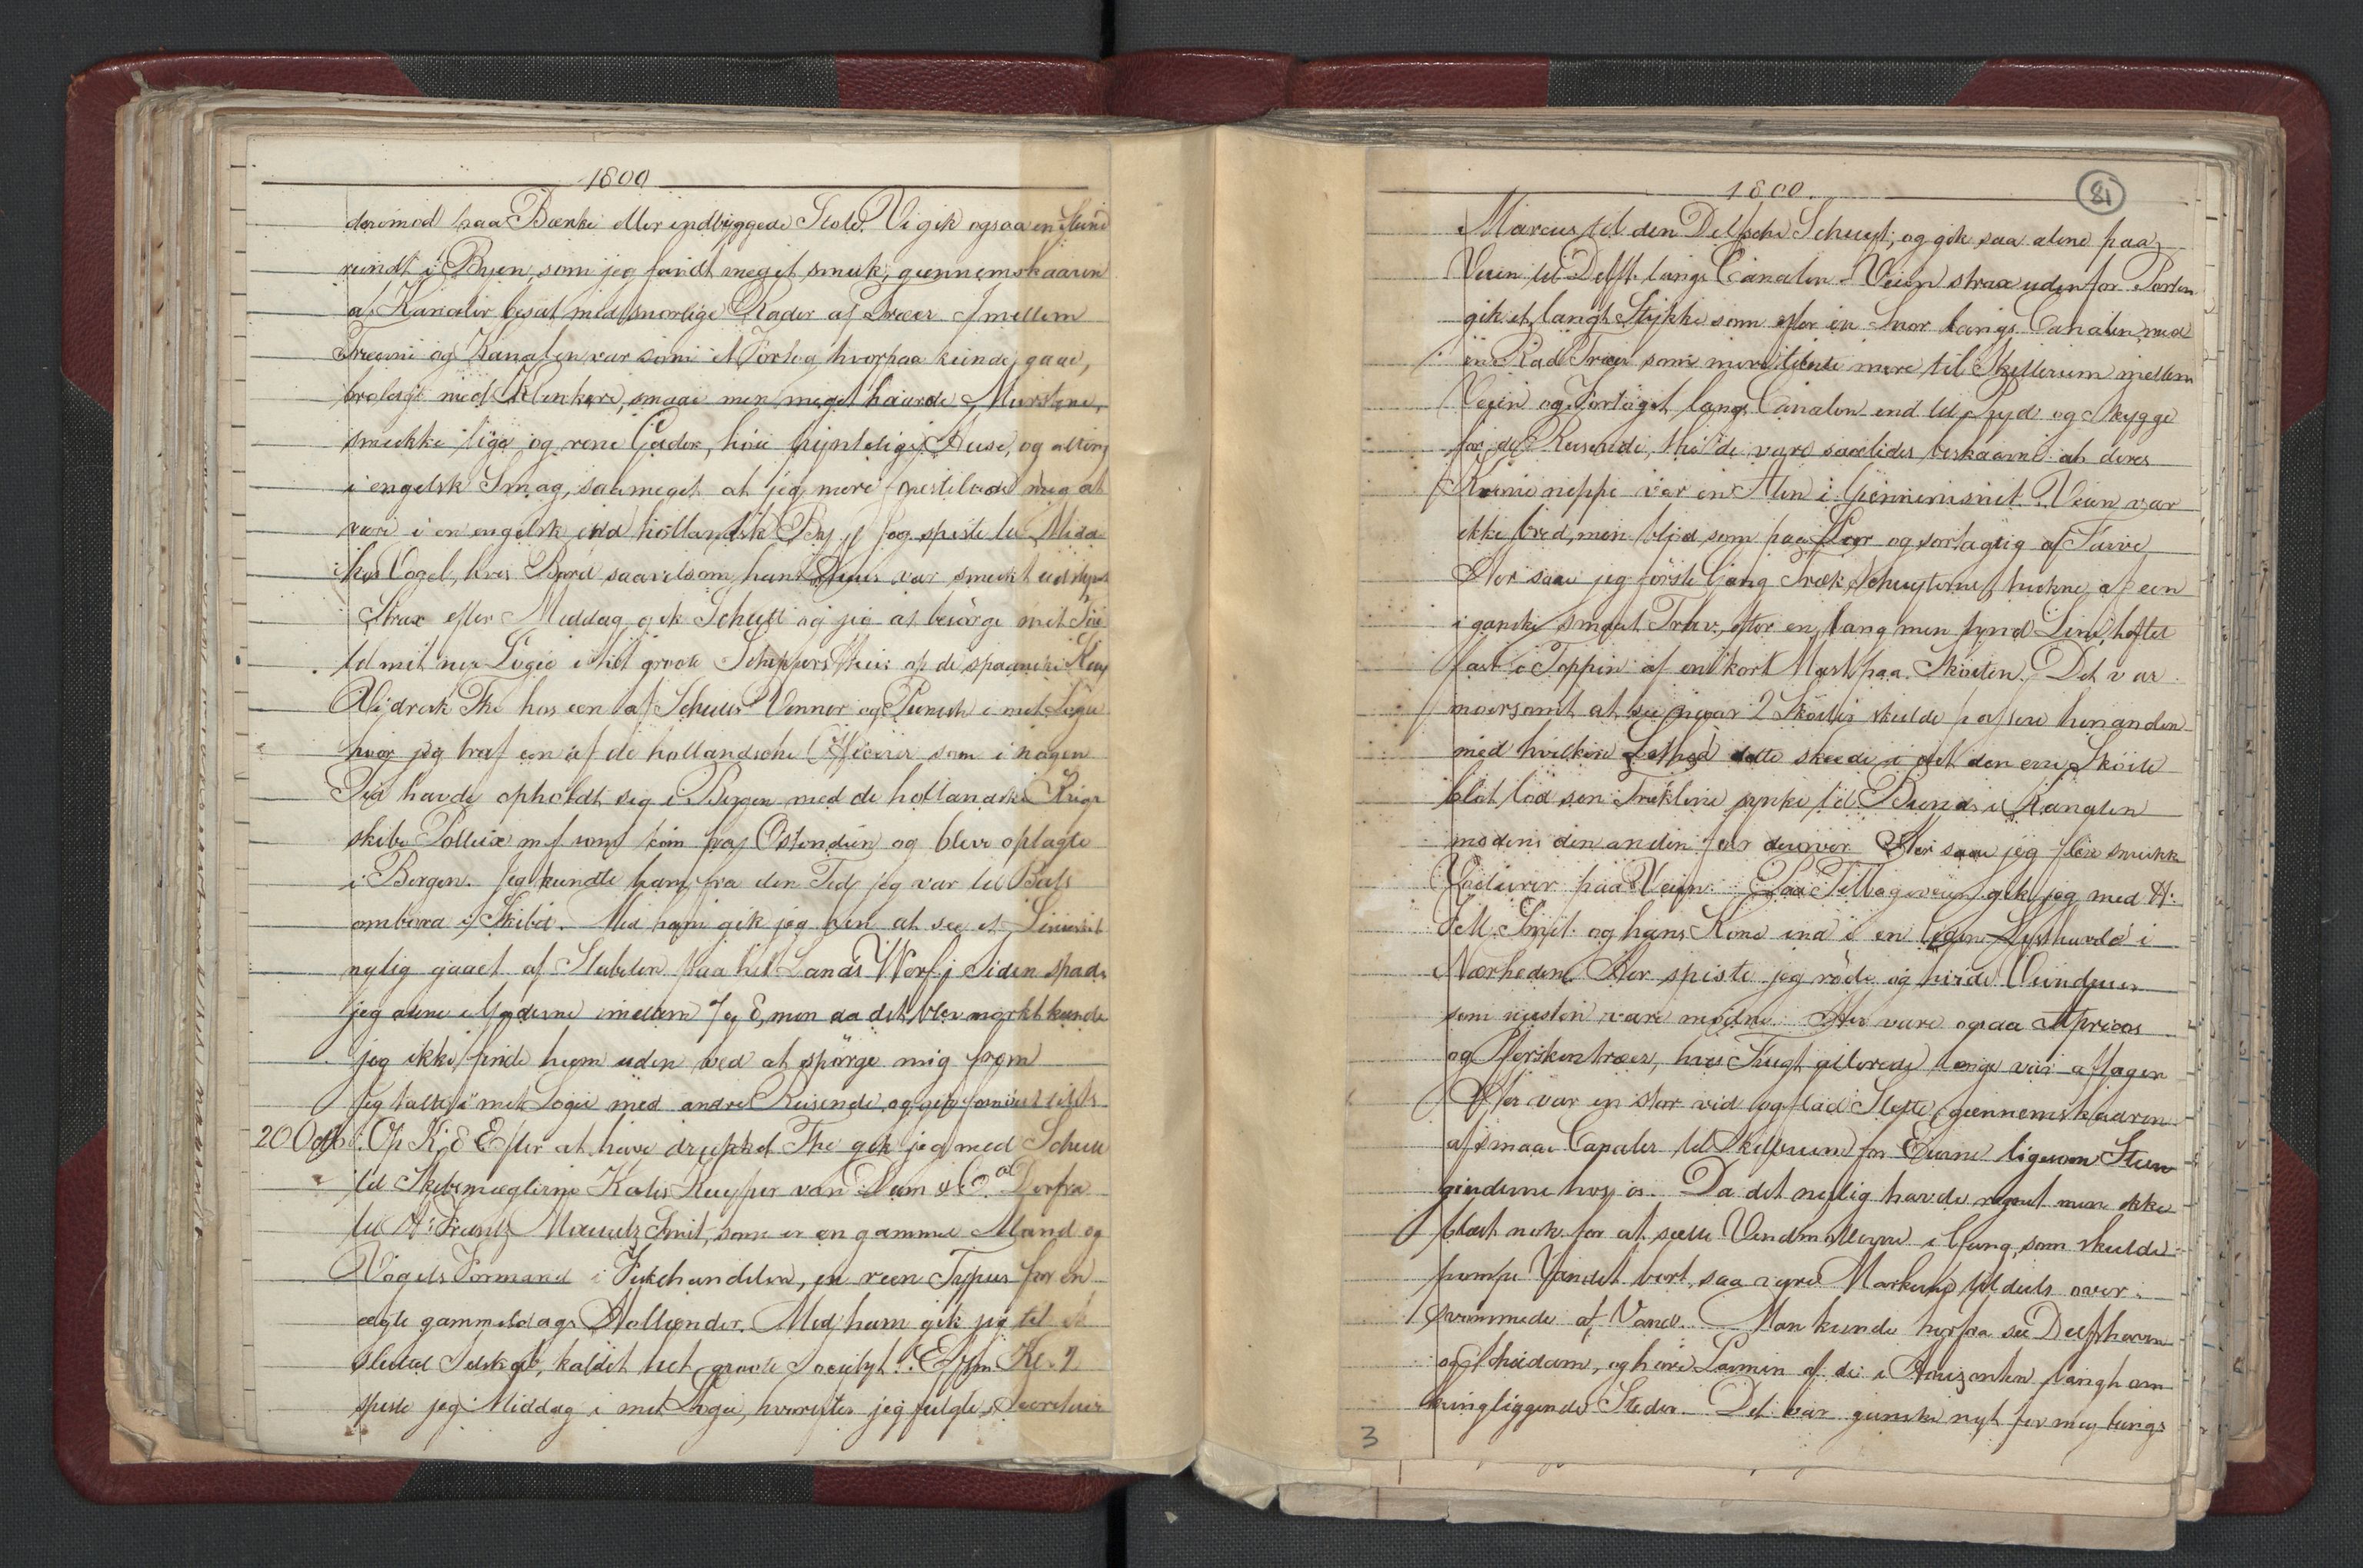 1800
derimod paa Bænke eller indbyggede Stole. Vi gik ogsaa en Stund
rundt i Byen, som jeg fandt meget smuk, giennemskaaren
af Kanaler besat med snorlige Rader af Træer. Imellem
Træerne og Kanalen var som et Fortog hvorpaa kunde gaae,
brolagt med Klinkere, smaae men meget haarde Mursteene,
smukke lige og rene Gader, høie pyntelige Huse, og alting
i engelsk Smag, saameget at jeg mere forestillede mig at
være i en engelsk end hollandsk By. Jeg spiste til Midda
hos Vogel, hvis Bord saavelsom hans Huus var smukt
Strax efter Middag gik Schutt og jeg at besörge mit Töi
til mit nye Logie i het groote Schippers Huis op de spaansche Kay
Vi drak The hos een af Schutts Venner og Punsch i mit Logie
hvor jeg traf een af de hollandsche Officerer som i nogen
Tid havde opholdt sig i Bergen med de hollandske Krigs
skibe Pollux m f som kom fra Ostindien og bleve oplagte
i Bergen. Jeg kiendte ham fra den Tid jeg var til Bals
ombord i Skibet. Med ham gik jeg hen at see et Linieskib
nylig gaaet af Stabelen paa het Lands Werf; siden spads
jeg alene i Gaderne imellem 7 og 8, men da det blev mørkt kunde
jeg ikke finde hiem uden ved at spörge mig frem
Jeg talte i mit Logie med andre Reisende, og gik
20 Octb. Op Kl. 8 Efter at have drukket The gik jeg med Schutt
til Skibsmæglerne Kolis Kuyper van Dam & Co. Derfra
til Hr. Frantz Mauritz Smit, som er en gammel Mand og
Vogels Formand i Fiskehandelen, en reen Typus for en
ægte gammeldags Hollænder. Med ham gik jeg til et
sluttet Selskab, kaldet het groote Societyt. Efterm Kl. 2
spiste jeg Middag i mit Logie, hvorefter jeg fulgte
1800.
81
Marcus til den Delfsche Schuyt, og gik saa alene paa
Veien til Delft langs Canalen. Veien strax udenfor Porten
gik et langt Stykke som efter en Snor langs Canalen, med
en Rad Træer som mere tiente mere til Skillerum mellem
Veien og Fortoget langs Canalen end til Pryd og Skygge
for de Reisende, thi de vare saaledes beskaarne at deres
Krone neppe var en Alen i Giennemsnit. Veien var
ikke bred, men blød som paa Leer og sortagtig af Tørve
Her saae jeg første Gang Træk Schuyterne trukne af een
i ganske smaat Trav, efter en lang men tynd Line, heftet
fast i Toppen af en kort Mast paa Skøiten. Det var
moersomt at see naar 2 Skøiter skulde passere hinanden
med hvilken Lethed dette skeede i det den ene Skøite
blot lod sin Trækline synke til Bunds i Kanalen
medens den anden foer derover. Her saae jeg flere smukke
Voiturer paa Veien. Paa Tilbageveien gik jeg med Hr.
F. M. Smit og hans Kone ind i en liden Lysthauge i
Nærheden. Her spiste jeg røde og hvide Viindruer
som næsten vare modne. Her vare ogsaa Apricos
og Ferskentræer, hvis Frugt allerede længe var aftagen
Her var en stor vid og flad Slette giennemskaaren
af smaae Canaler til Skillerum for Eierne ligesom Steen
gierderne hos os. Da det nylig havde regnet men ikke
blæst nok for at sætte Vindmøllerne i Gang, som skulde
pumpe Vandet bort, saa vare Markerne tildeels over-
svømmede af Vand. Man kunde herfra see Delfshaven
og Schiedam, og høre Larmen af de i Horizonten langt om
kringliggende Steder. Det var ganske nyt for mig langs
3